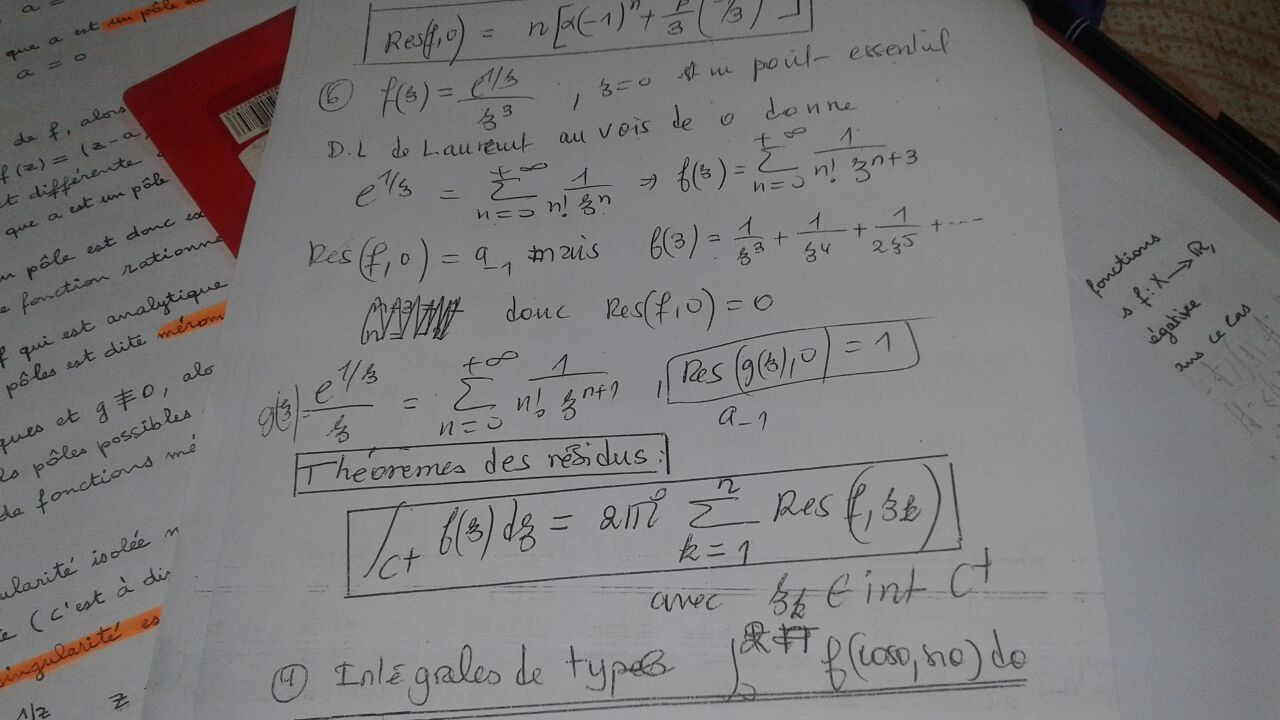 a =
que a est un pôle
a = 0
de f, alors
f(z) = (z - a
t différente
que a est un pôle
pôle est donc
fonction rationne
f qui est analytique
pôles est dite mérom
ques et g ≢ 0, alo
pôles possibles
de fonctions mé
ularité isolée
(c'est à di
singularité es
1/z z
Res(f,0) = n[2(-1)^n +
⑥ f(z) = e^{1/z}/z^3 , z=0 est un point essentiel
D.L de Laurent au vois de 0 donne
e^{1/z} = \sum_{n=0}^{+∞} 1/(n! z^n) ⇒ f(z) = \sum_{n=0}^{+∞} 1/(n! z^{n+3})
Res(f,0) = a_{-1} mais f(z) = 1/z^3 + 1/z^4 + 1/(2z^5) + ....
donc Res(f,0) = 0
g(z) = e^{1/z}/z = \sum_{n=0}^{+∞} 1/(n! z^{n+1}) , Res(g(z),0) = 1
a_{-1}
Théoremes des résidus:
∫_{C+} f(z) dz = 2πi \sum_{k=1}^{n} Res(f, z_k)
avec z_k ∈ int C^+
Intégrales de types
fonctions
s f: X → R,
égative
ans ce cas